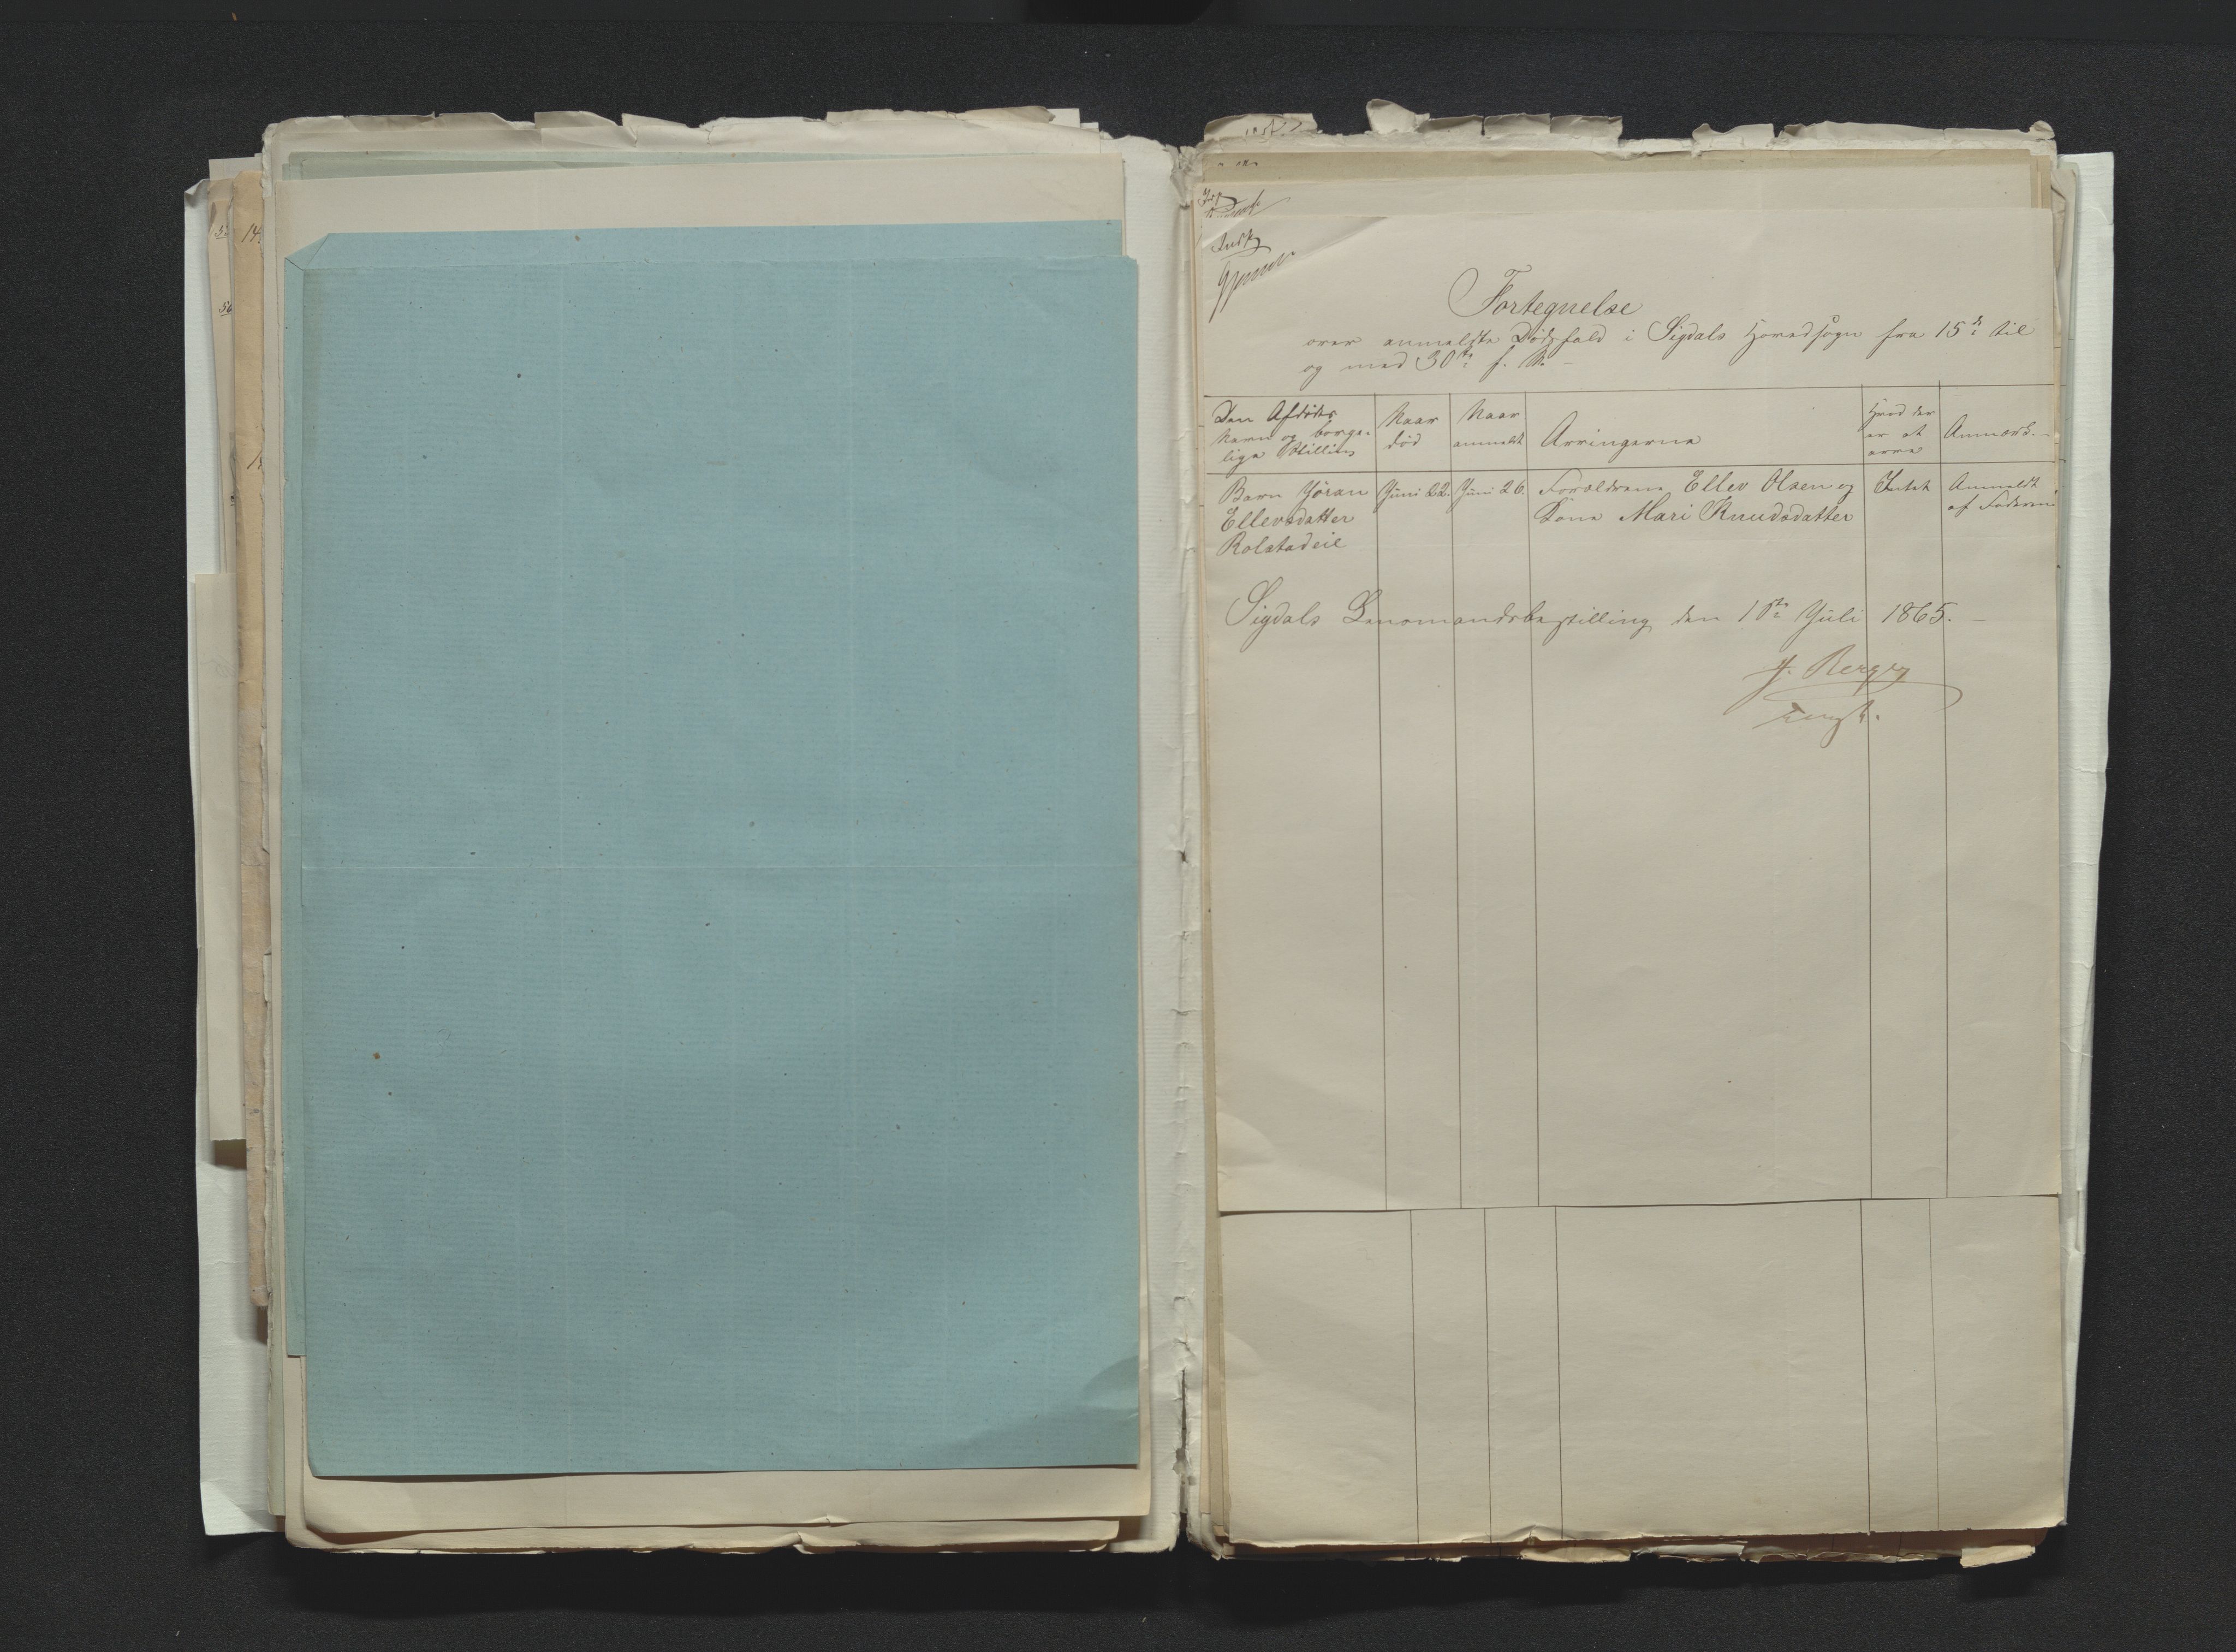 Fortegnelse
over anmeldte Dødsfald i Sigdals Hovedsogn fra 15de til
og med 30te f. M.
Den Afdødes
Navn og borger-
lige Stilling
Naar
død
Naar
anmeldt
Arvingerne
Hvad der
er at
arve
Anmærk.
Barn Jøran
Ellevsdatter
Rolstadeie
Juni 22.
Juni 26.
Forældrene Ellev Olsen og
Kone Mari Knudsdatter
Intet
Anmeldt
af Faderen
Sigdals Lensmandsbestilling den 1ste Juli 1865.